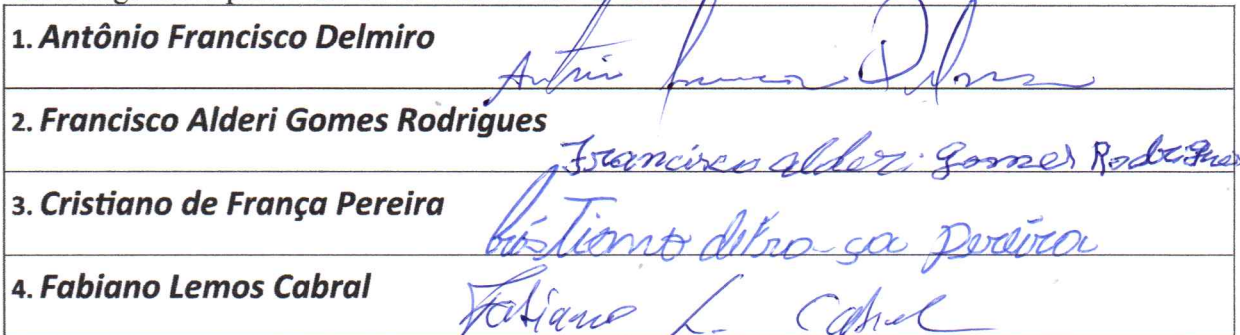 1. Antônio Francisco Delmiro
Antônio Francisco Delmiro
2. Francisco Alderi Gomes Rodrigues
Francisco alderi Gomes Rodrigues
3. Cristiano de França Pereira
Cristiano de França pereira
4. Fabiano Lemos Cabral
Fabiano L. Cabral